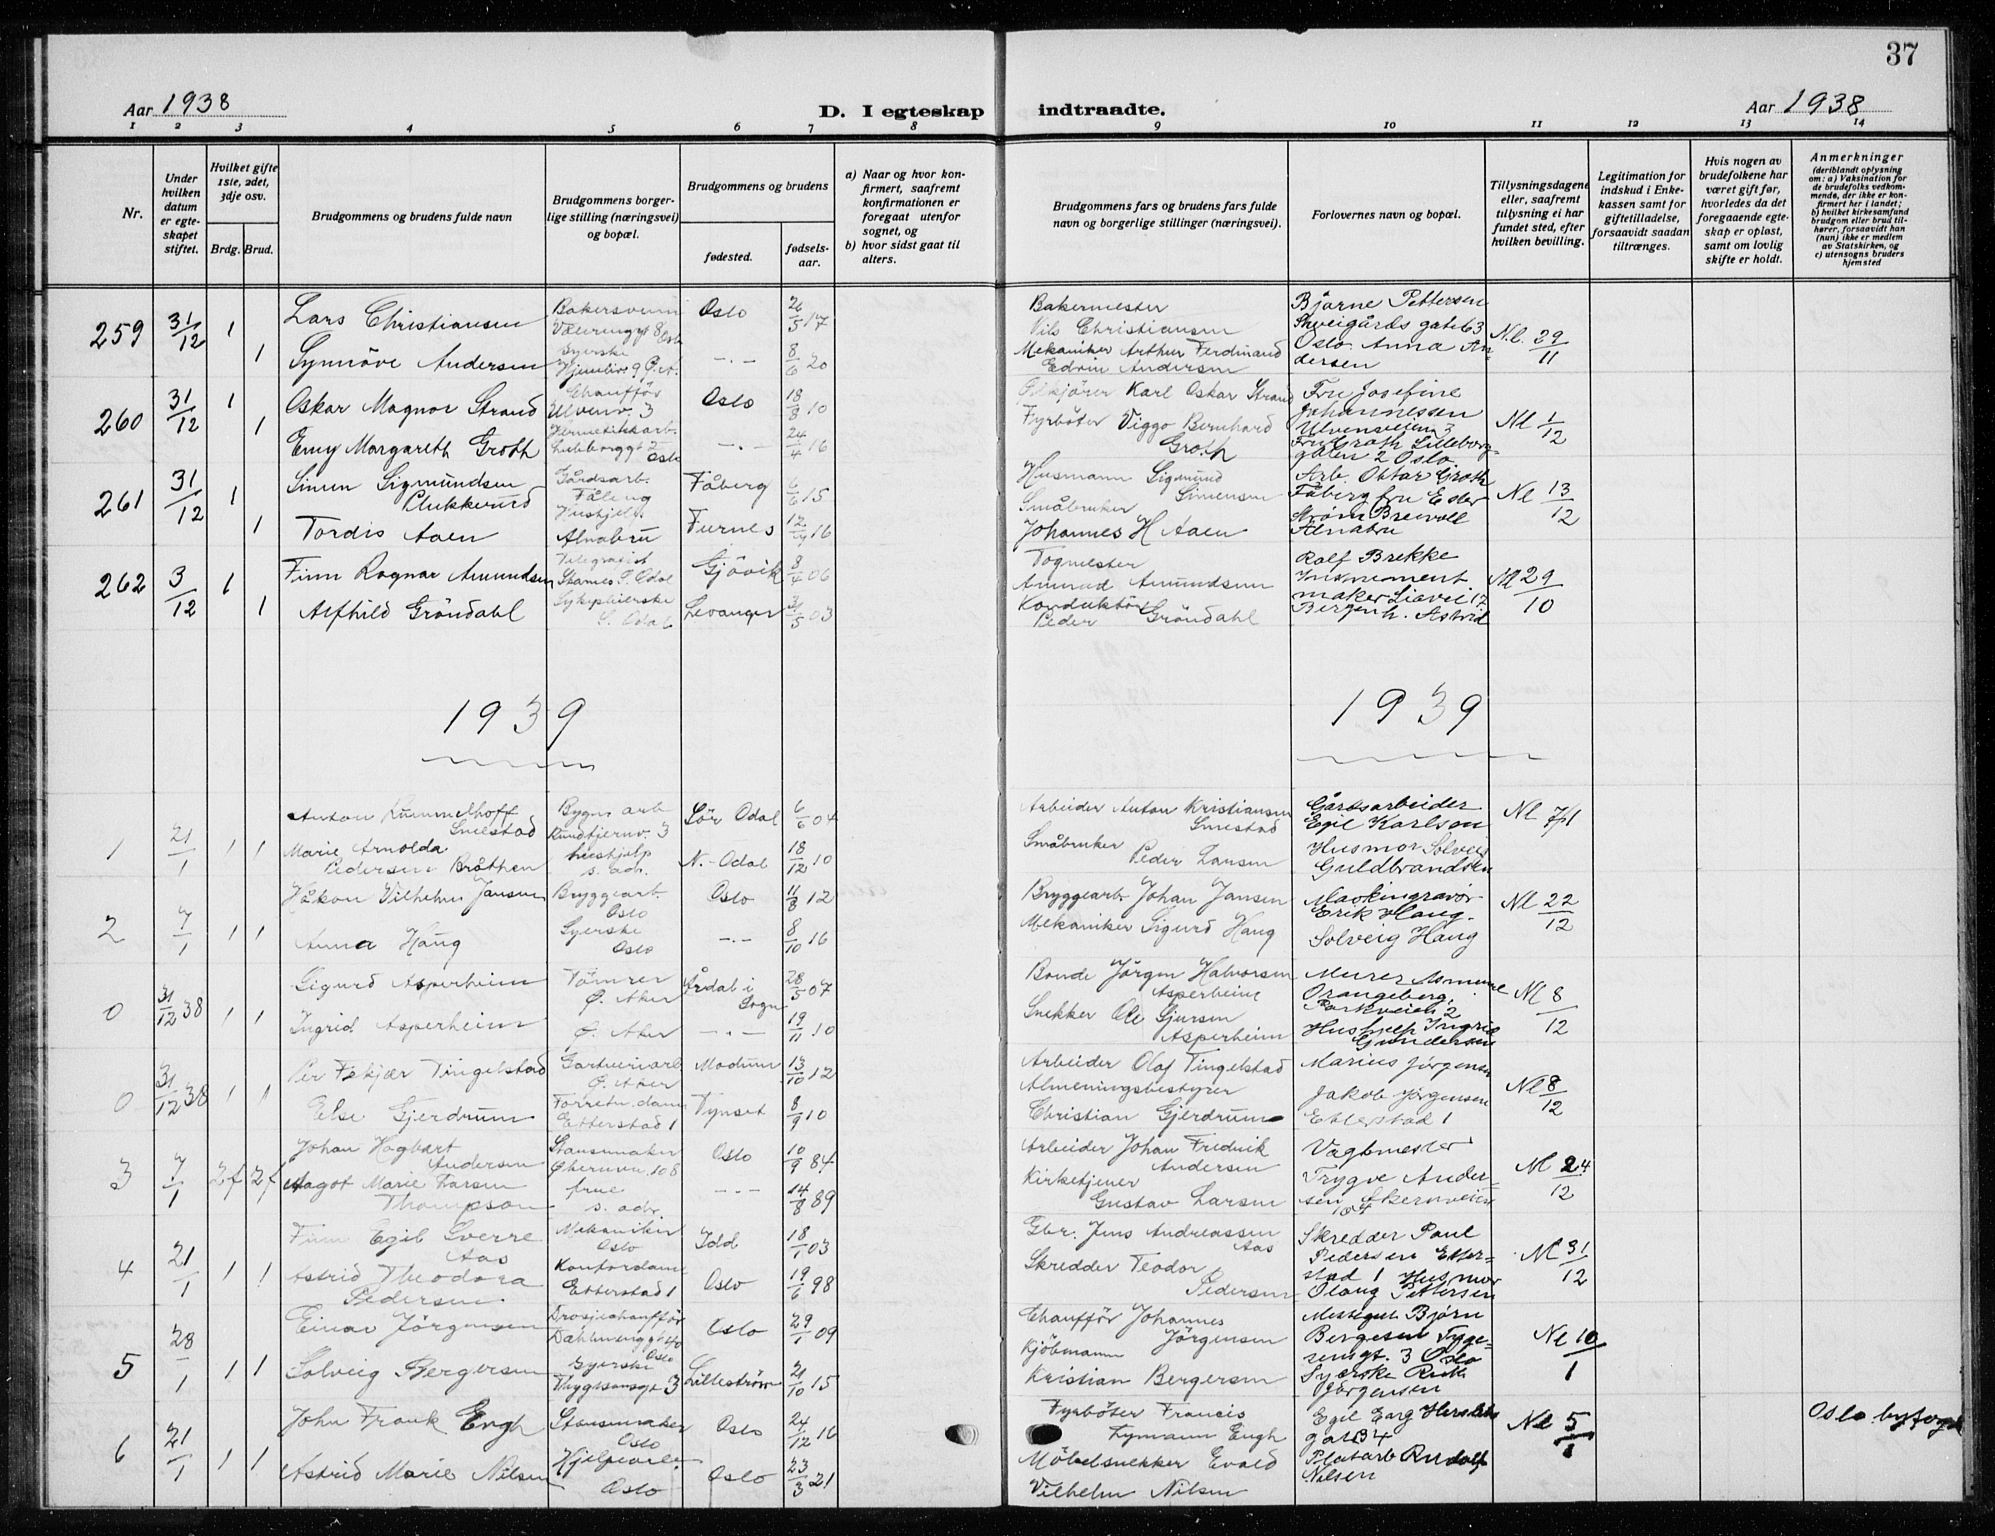 37
Aar 1938
D. I egteskap indtraadte.
Aar 1938
1 2 3 4 5 6 7 8 9 10 11 12 13 14
Nr.
Under hvilken datum er egteskapet stiftet.
Hvilket gifte 1ste, 2det, 3dje osv.
Brdg. Brud.
Brudgommens og brudens fulde navn
Brudgommens borgerlige stilling (næringsvei) og bopæl.
Brudgommens og brudens
fødested.
fødselsaar.
a) Naar og hvor konfirmert, saafremt konfirmationen er foregaat utenfor sognet, og
b) hvor sidst gaat til alters.
Brudgommens fars og brudens fars fulde navn og borgerlige stillinger (næringsvei).
Forlovernes navn og bopæl.
Tillysningsdagene eller, saafremt tillysning ei har fundet sted, efter hvilken bevilling.
Legitimation for indskud i Enkekassen samt for giftetilladelse, forsaavidt saadan tiltrænges.
Hvis nogen av brudefolkene har været gift før, hvorledes da det foregaaende egteskap er opløst, samt om lovlig skifte er holdt.
Anmerkninger (deriblandt oplysning om: a) Vaksination for de brudefolks vedkommende, der ikke er konfirmert her i landet; b) hvilket kirkesamfund brudgom eller brud tilhører, forsaavidt han (hun) ikke er medlem av Statskirken, og c) utensogns bruders hjemsted
259 31/12 1 Lars Christiansen Oslo 26/5 17 Bakermester Nils Christiansen Bjarne Pettersen Schweigårds gate 63 Nl. 29/11
1 Synnöve Andersen Syerske -.- 8/6 20 Mekaniker Arthur Ferdinand Edvin Andersen Oslo. Anna Andersen
260 31/12 1 Oskar Magnor Strand Chaufför Ulvenv. 3 Oslo 18/8 10 Karl Oskar Strand Fru Josefine Johannessen Ulvenveien 3 Nl 1/12
1 Emy Margareth Groth Oslo -.- 24/4 16 Fyrböter Viggo Bernhard Groth Fru Groth Lilleborggaten 2 Oslo
261 31/12 1 Simen Sigmundsen Plukkerud Gårdsarb. Fåberg 6/6 15 Husmann Sigmund Simensen Arb. Ottar Groth Fåberg fru Ester Nl 13/12
1 Tordis Aaen Hushjelp Alnabru Furnes 12/4 16 Småbruker Johannes H Aaen Ström Breivoll Alnabru
262 3/12 1 Finn Ragnar Amundsen Telegrafist Gjövik 8/4 06 Togmester Amund Amundsen Rolf Brekke Instrumentmaker Liavei 17 Nl 29/10
1 Alfhild Gröndahl Sykepleierske S. Odal Levanger 31/5 03 Konduktör Peder Gröndahl Bergen h. Astrid
1939
1939
1 21/1 1 1 Anton Rummelhoff Smestad Bygn. arb Sör Odal 6/6 04 Arbeider Anton Kristiansen Smestad Gårdsarbeider Egil Karlsen Nl 7/1
Marie Arnolda Pedersen Bråthen hushjelp s. adr. N.-Odal 18/12 10 Småbruker Peder Larsen Husmor Solveig Guldbrandsen
2 7/1 1 1 Håkon Vilhelm Jansen Bryggearb. Oslo Oslo 11/8 12 Bryggearb Johan Jansen Maskingravör Erik Haug. Nl 22/12
Anna Haug Syerske Oslo -.- 8/10 16 Mekaniker Sigurd Haug Solveig Haug
0 31/12 38 1 1 Sigurd Asperheim Tömrer Ö. Aker Årdal i Sogn 28/5 07 Bonde Jörgen Halvorsen Asperheim Murer Orangeberg, Parkveien 2 Nl 8/12
Ingrid Asperheim Ö. Aker -.- 19/11 10 Snekker Ole Sjursen Asperheim Hushjelp Ingrid Gundersen
0 31/12 38 1 1 Per Fskjær Tingelstad Gartneriarb Ö. Aker Modum 13/10 12 Arbeider Olaf Tingelstad Marius Jørgensen Nl 8/12
Else Gjerdrum Forretn. dame Etterstad 1 Tynset 8/9 10 Almenningsbestyrer Christian Gjerdrum Jakob Jørgensen Etterstad 1
3 7/1 2f 2f Johan Hagbart Andersen Stansemaker Økernvn. 108 Oslo 10/9 84 Arbeider Johan Fredrik Andersen Vagtmester Trygve Andersen, Økernveien 104 Nl 24/12
Aagot Marie Larsen Thompson frue s. adr. -.- 14/8 89 Kirketjener Gustav Larsen
4 21/1 1 1 Finn Egil Sverre Aas Mekaniker Oslo Idd 18/1 03 Gbr. Jens Andreassen Aas Skredder Paul Pedersen Etterstad 1 Nl 31/12
Astrid Theodora Pedersen Kontordame Etterstad 1 Oslo 19/6 98 Skredder Teodor Pedersen Husmor Olaug Pettersen
5 28/1 1 1 Einar Jörgensen Drosjechaufför Oslo 29/1 09 Chaufför Johannes Jörgensen Bjørn Bergesen Tygesensgt. 3 Oslo Nl 10/1
Solveig Bergersen Syerske Lilleström 21/10 15 Kjöbmann Kristian Bergersen Syerske Ruth Jørgensen
6 21/1 1 1 John Frank Engh Stansemaker Oslo Oslo 24/12 16 Fyrböter Francis Lymann Engh Egil Nl 5/1 Oslo byfogd
Astrid Marie Nilsen Hjelpearb. Oslo Oslo 23/3 21 Möbelsnekker Evald Vilhelm Nilsen Platearb Rudolf Nilsen